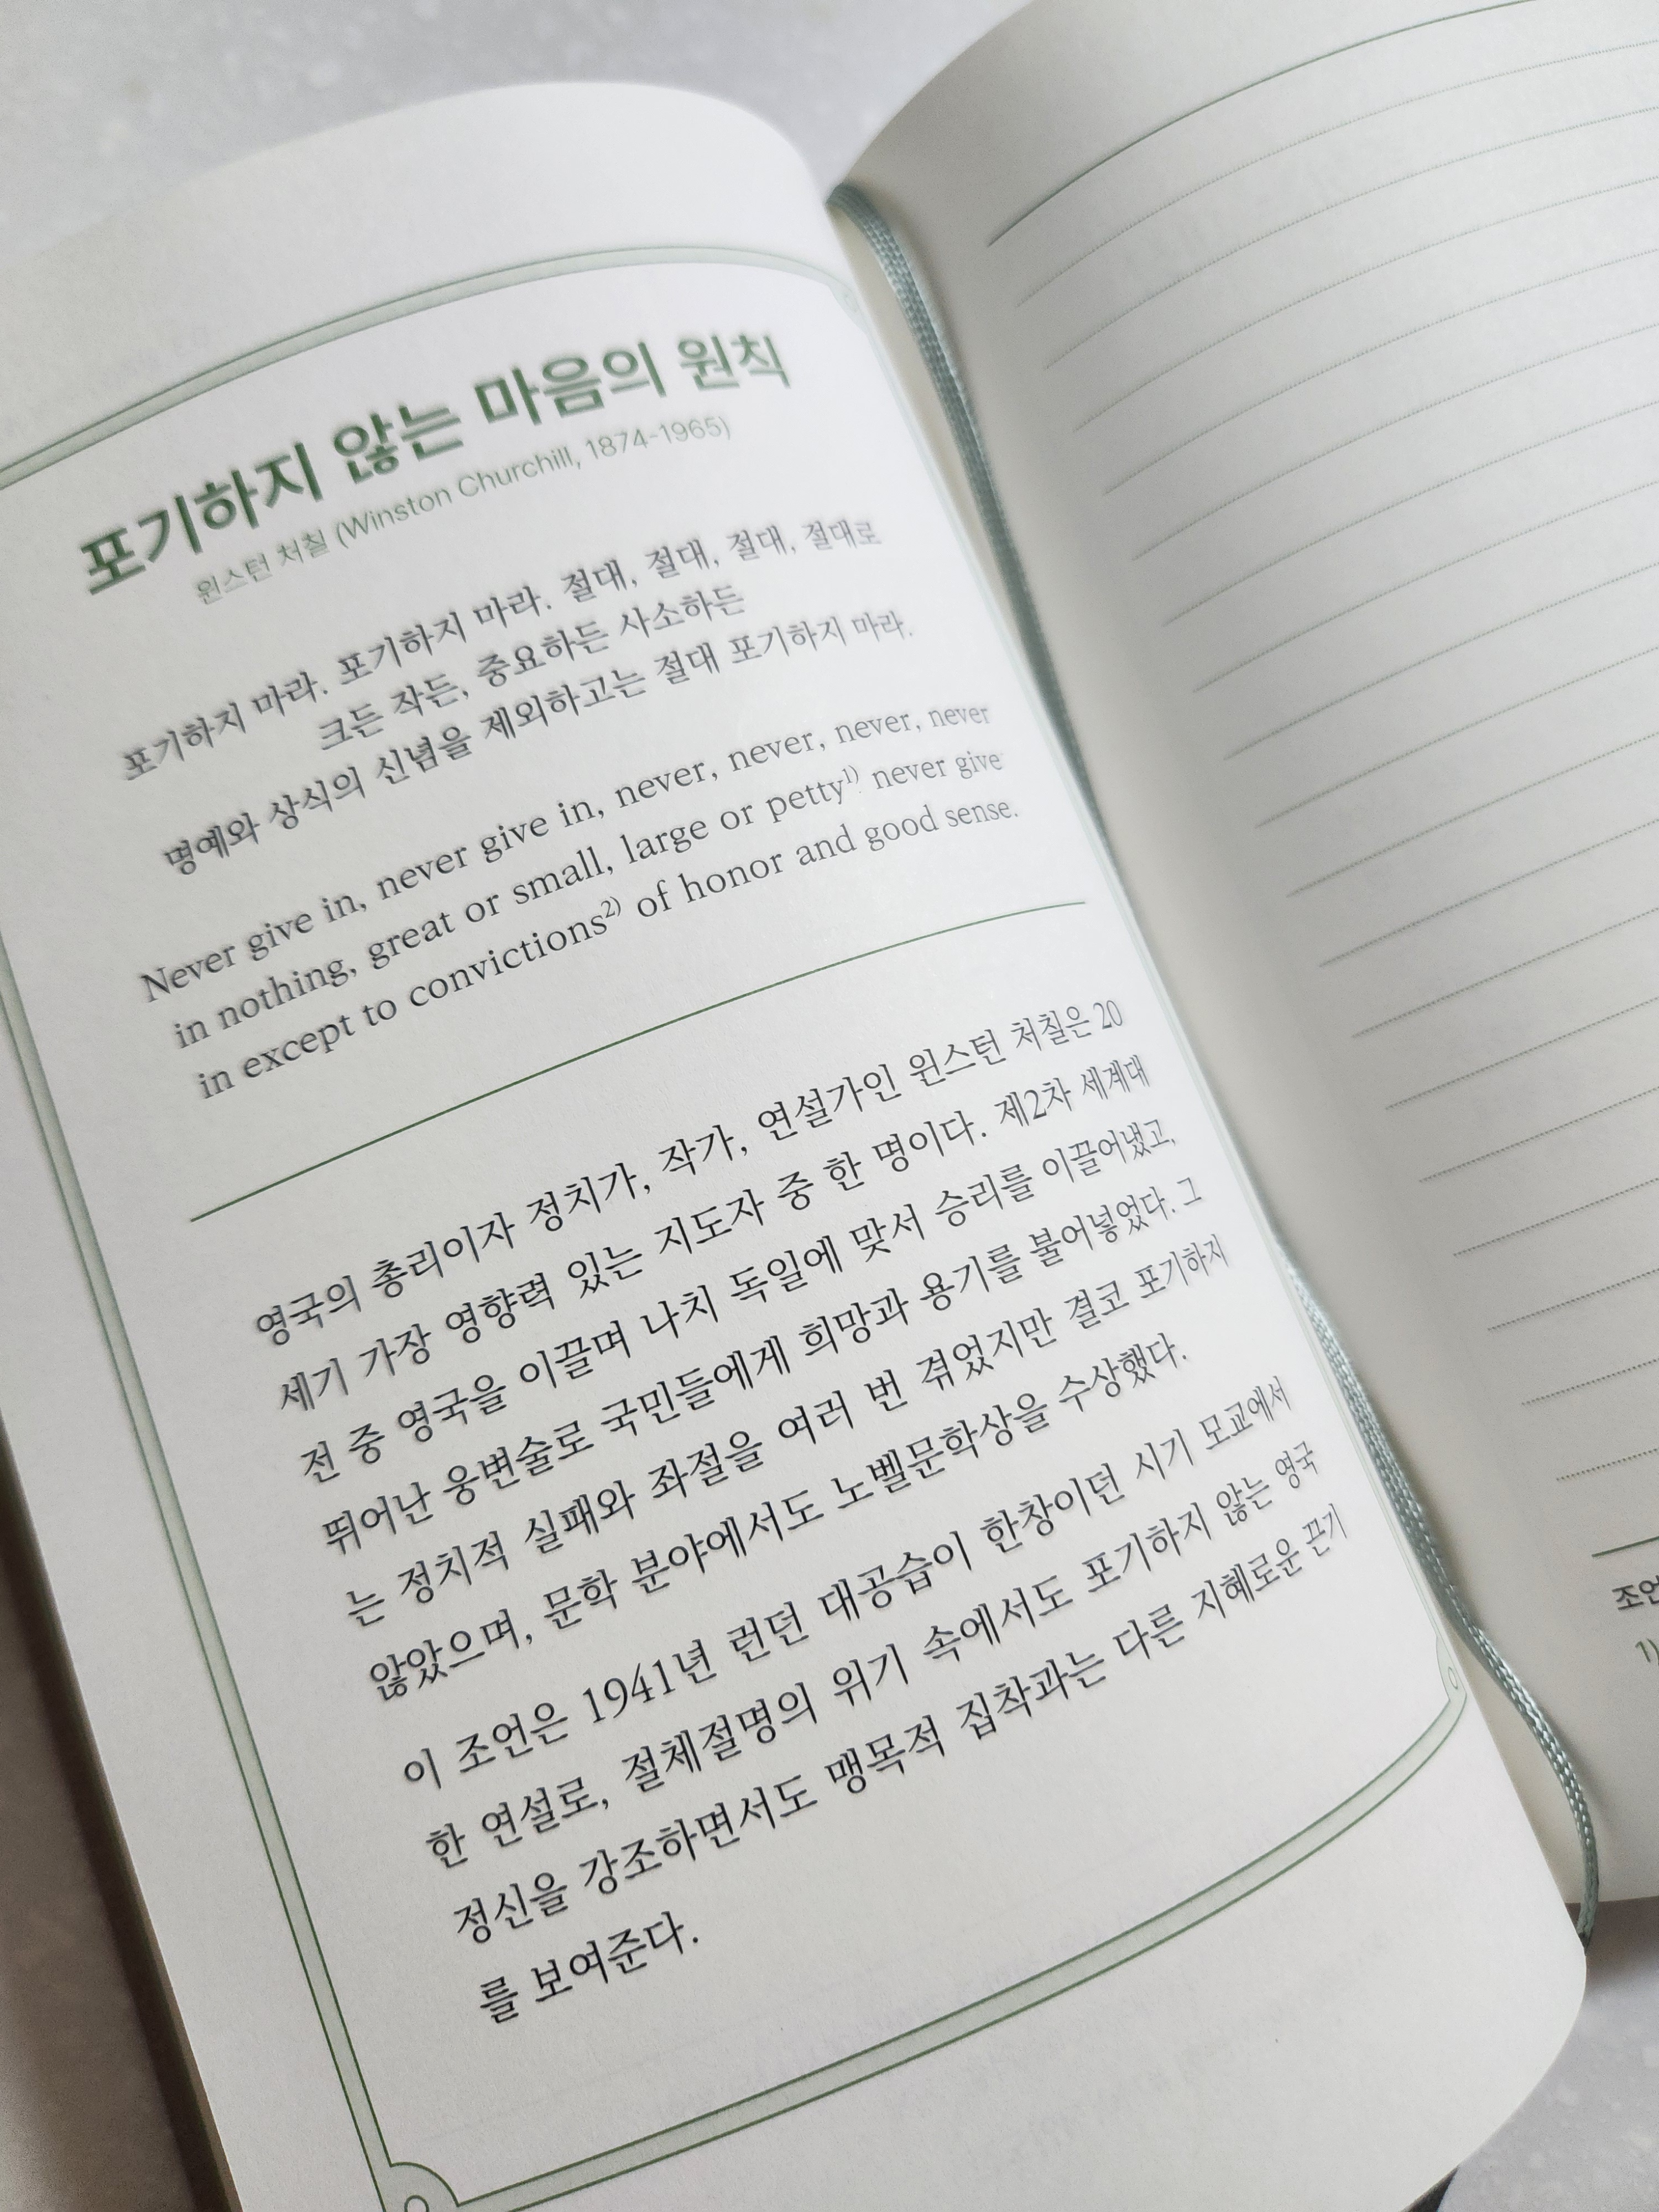 포기하지 않는 마음의 원칙
윈스턴 처칠 (Winston Churchill, 1874-1965)
포기하지 마라. 포기하지 마라. 절대, 절대, 절대, 절대로
크든 작든, 중요하든 사소하든
명예와 상식의 신념을 제외하고는 절대 포기하지 마라.
Never give in, never give in, never, never, never, never
in nothing, great or small, large or petty1) never give
in except to convictions2) of honor and good sense.
영국의 총리이자 정치가, 작가, 연설가인 윈스턴 처칠은 20
세기 가장 영향력 있는 지도자 중 한 명이다. 제2차 세계대
전 중 영국을 이끌며 나치 독일에 맞서 승리를 이끌어냈고,
뛰어난 웅변술로 국민들에게 희망과 용기를 불어넣었다. 그
는 정치적 실패와 좌절을 여러 번 겪었지만 결코 포기하지
않았으며, 문학 분야에서도 노벨문학상을 수상했다.
이 조언은 1941년 런던 대공습이 한창이던 시기 모교에서
한 연설로, 절체절명의 위기 속에서도 포기하지 않는 영국
정신을 강조하면서도 맹목적 집착과는 다른 지혜로운 끈기
를 보여준다.
조언
1)